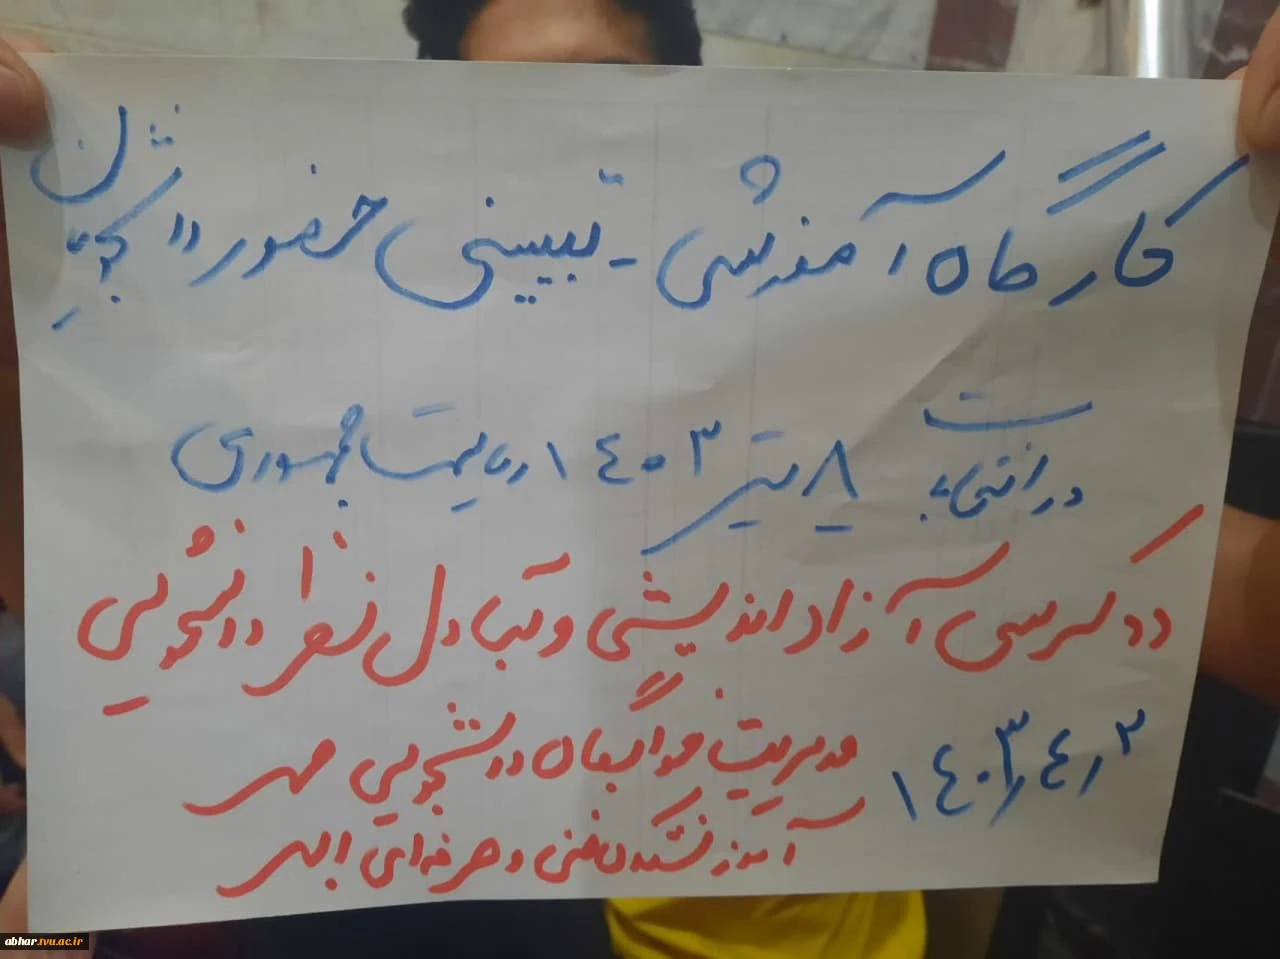 کارگاه آموزشی - تبیینی حضور دانشجویان
در انتخابات ۸ تیر ۱۴۰۳ ریاست جمهوری
در کرسی آزاد اندیشی و تبادل نظر دانشجویی
۱۴۰۳/۴/۲
مدیریت خوابگاه دانشجویی مهر
آموزشکده فنی و حرفه ای ابهر
abhar.tvu.ac.ir